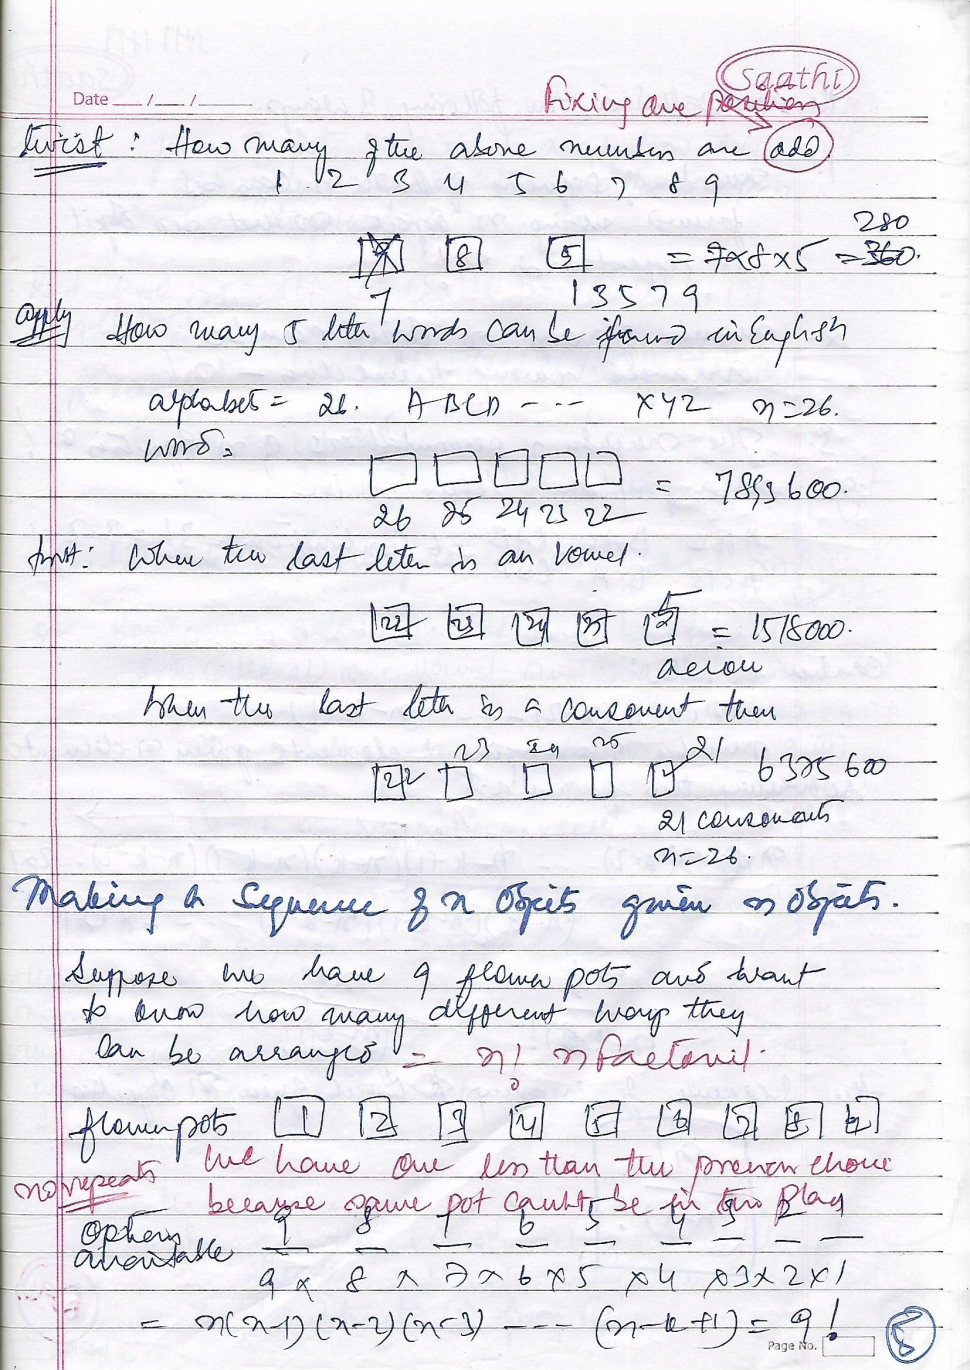 Saathi
Date __/__/____
Fixing one position
Twist : How many of the above numbers are odd.
1 2 3 4 5 6 7 8 9
280
8 5 = 7x8x5 = 360.
7 1 3 5 7 9
apply How many 5 letter words can be found in English
alphabet = 26. A B C D - - - X Y Z n = 26.
word =
= 7893600.
26 25 24 23 22
When the last letter is an vowel.
5
22 23 24 25 = 1518000.
aeiou
when the last letter is a consonent then
22 23 24 25 21 6375600
21 consonants
n = 26.
Making a Sequence of n Objects given n Objects.
Suppose we have 9 flower pots and want
to know how many different ways they
can be arranged = n! n factorial.
flower pots 1 2 3 4 5 6 7 8 9
no repeats We have one less than the previous choice
because same pot can't be in two places
Options 9 8 7 6 5 4 3 2
available
9 x 8 x 7 x 6 x 5 x 4 x 3 x 2 x 1
= n(n-1)(n-2)(n-3) ---- (n-k+1) = 9!
Page No. 8